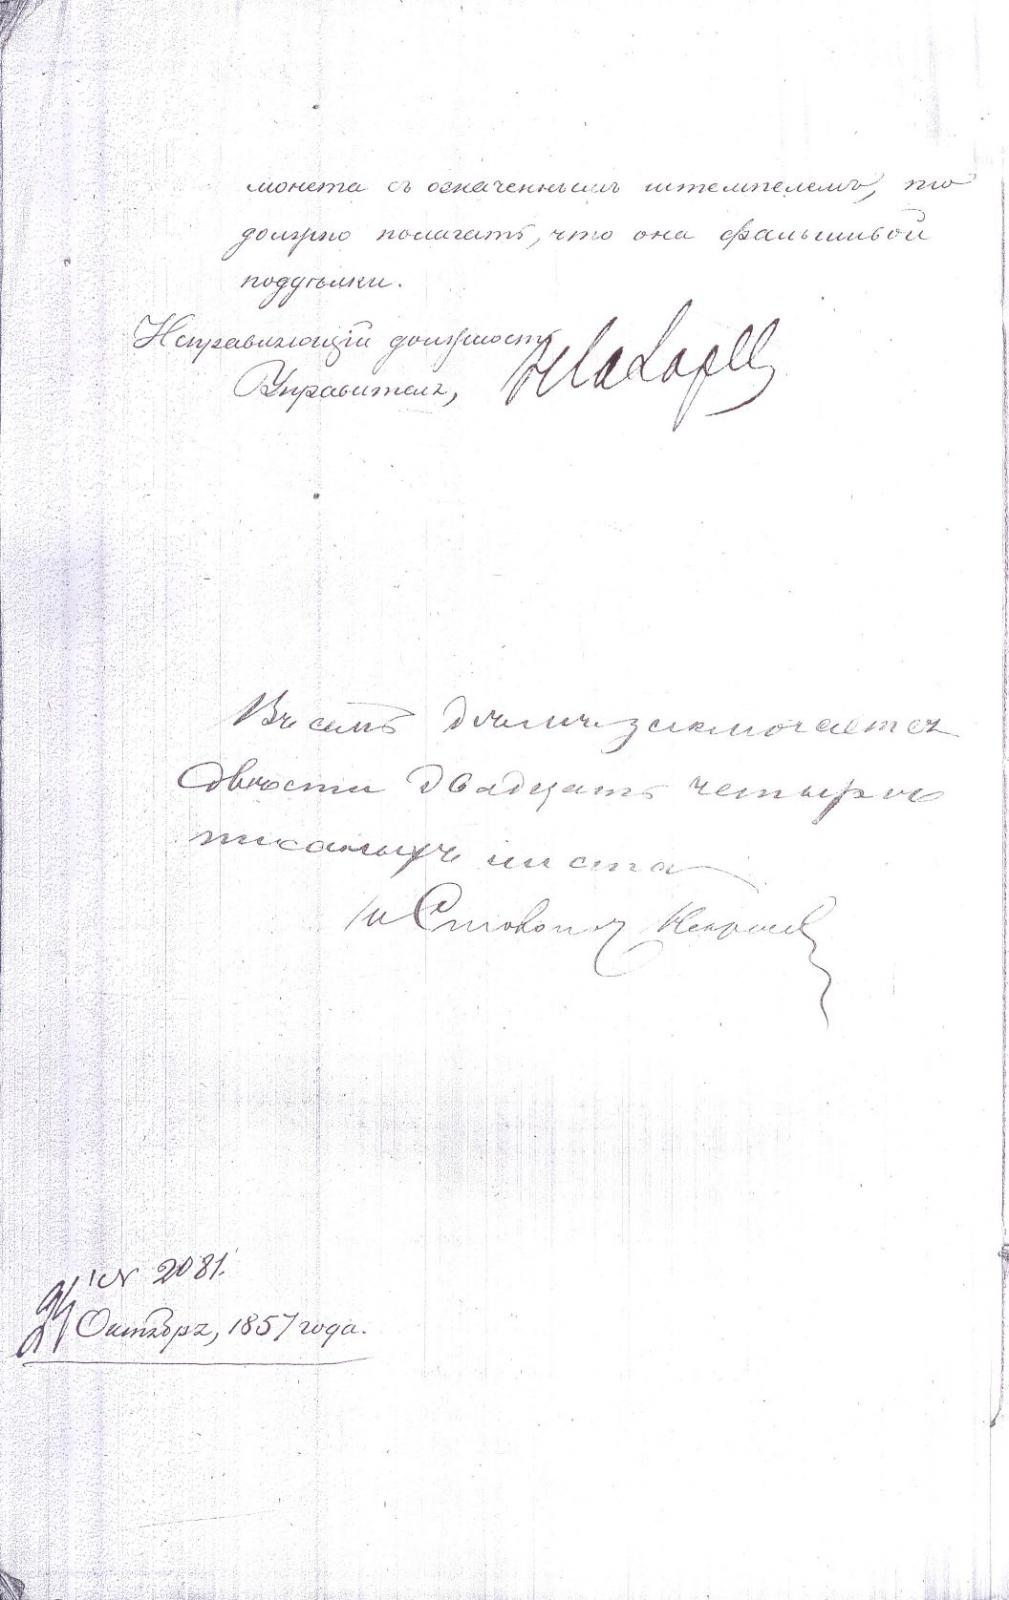 монета съ означеннымъ штемпелемъ, то
должно полагать, что она фальшивой
поддѣлки.
Исправляющій должность
Управителя,
Въ семъ дѣлѣ заключается
двѣсти двадцать четыре
писаныхъ листа
№ 2081.
24 Октября, 1857 года.